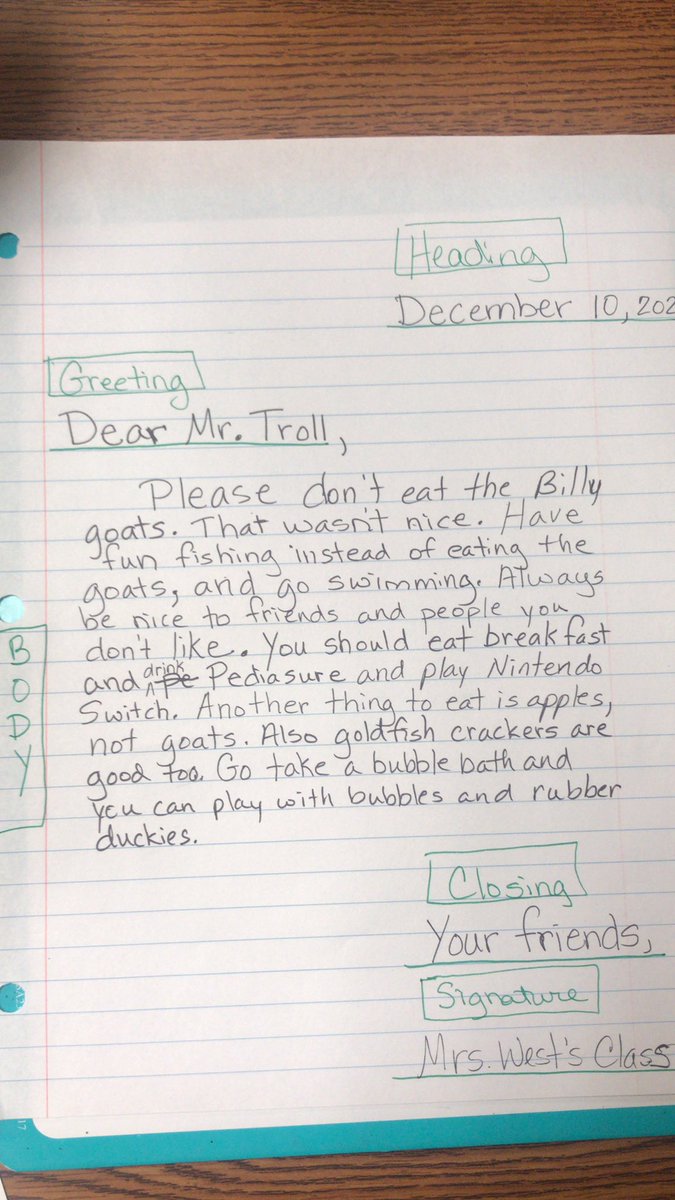 Heading
December 10, 202
Greeting
Dear Mr. Troll,
Please don't eat the Billy
goats. That wasn't nice. Have
fun fishing instead of eating the
goats, and go swimming. Always
be nice to friends and people you
don't like. You should eat breakfast
and drink Pediasure and play Nintendo
Switch. Another thing to eat is apples,
not goats. Also goldfish crackers are
good too. Go take a bubble bath and
you can play with bubbles and rubber
duckies.
BODY
Closing
Your friends,
Signature
Mrs. West's Class